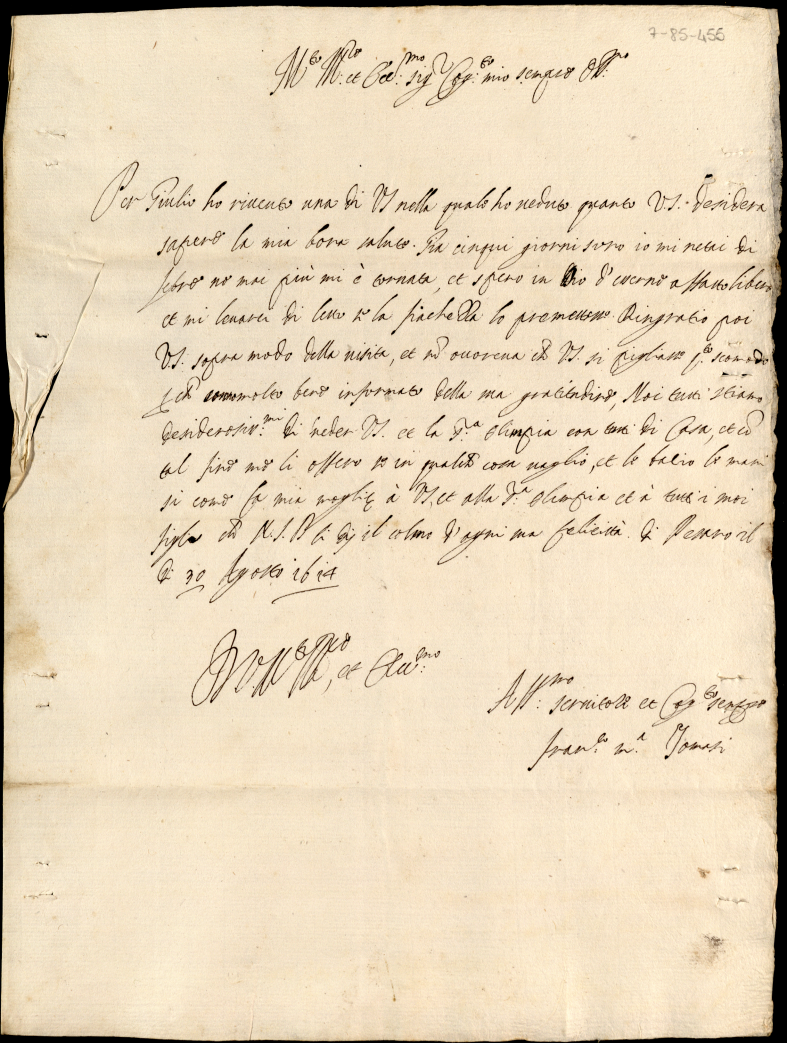 7-85-455
M.to Ill.re et Ecc.mo sig.r Cog.to mio sempre oss.mo
Per Giulio ho riceuto una di VS nella quale ho veduto quanto VS. desidera
sapere la mia bona salute. Gia cinqui giorni sono io mi netai di
febre ne mai più mi è tornata, et spero in Dio d'esserne affatto libero
et mi levarei di letto se la fiachezza lo premettesse. Ringratio poi
VS. sopra modo della visita, et nō ocoreva chē VS. si pigliasse q.to scomodo
molto bene informato della sua gratitudine, Noi tutti stiamo
desiderosiss.mi di veder VS. et la S.ra Olimpia con tutti di Casa, et cō
tal fine me li offero se in qualchē cosa vaglio, et le bacio le mani
si come fa mia moglie à VS, et alla S.ra Olimpia et à tutti i suoi
figli chē N.S. Dio li dij il colmo d'ogni sua felicità. di Pesaro il
di 30 Agosto 1614
Di VS M.to Ill.re, et Ecc.mo
Aff.mo servitore et Cog.to sempre
Fran.co M.a Tomasi